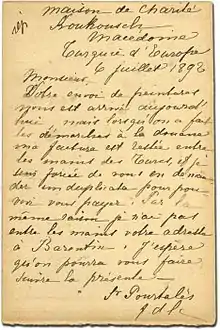 rép
Maison de Charité
Macedoine
Turquie d'Europe
6 juillet 1892
Monsieur
Votre envoi de peintures
nous est arrivé aujourd'
hui, mais lorsqu'on a fait
les démarches à la douane
ma facture est restée entre
les mains des Turcs, et je
suis forcée de vous en deman
der un duplicata pour pou
voir vous payer. Par la
même raison je n'ai pas
entre les mains votre adresse
à Barentin; j'espère
qu'on pourra vous faire
suivre la présente
Sr Pourtalès
f d l c